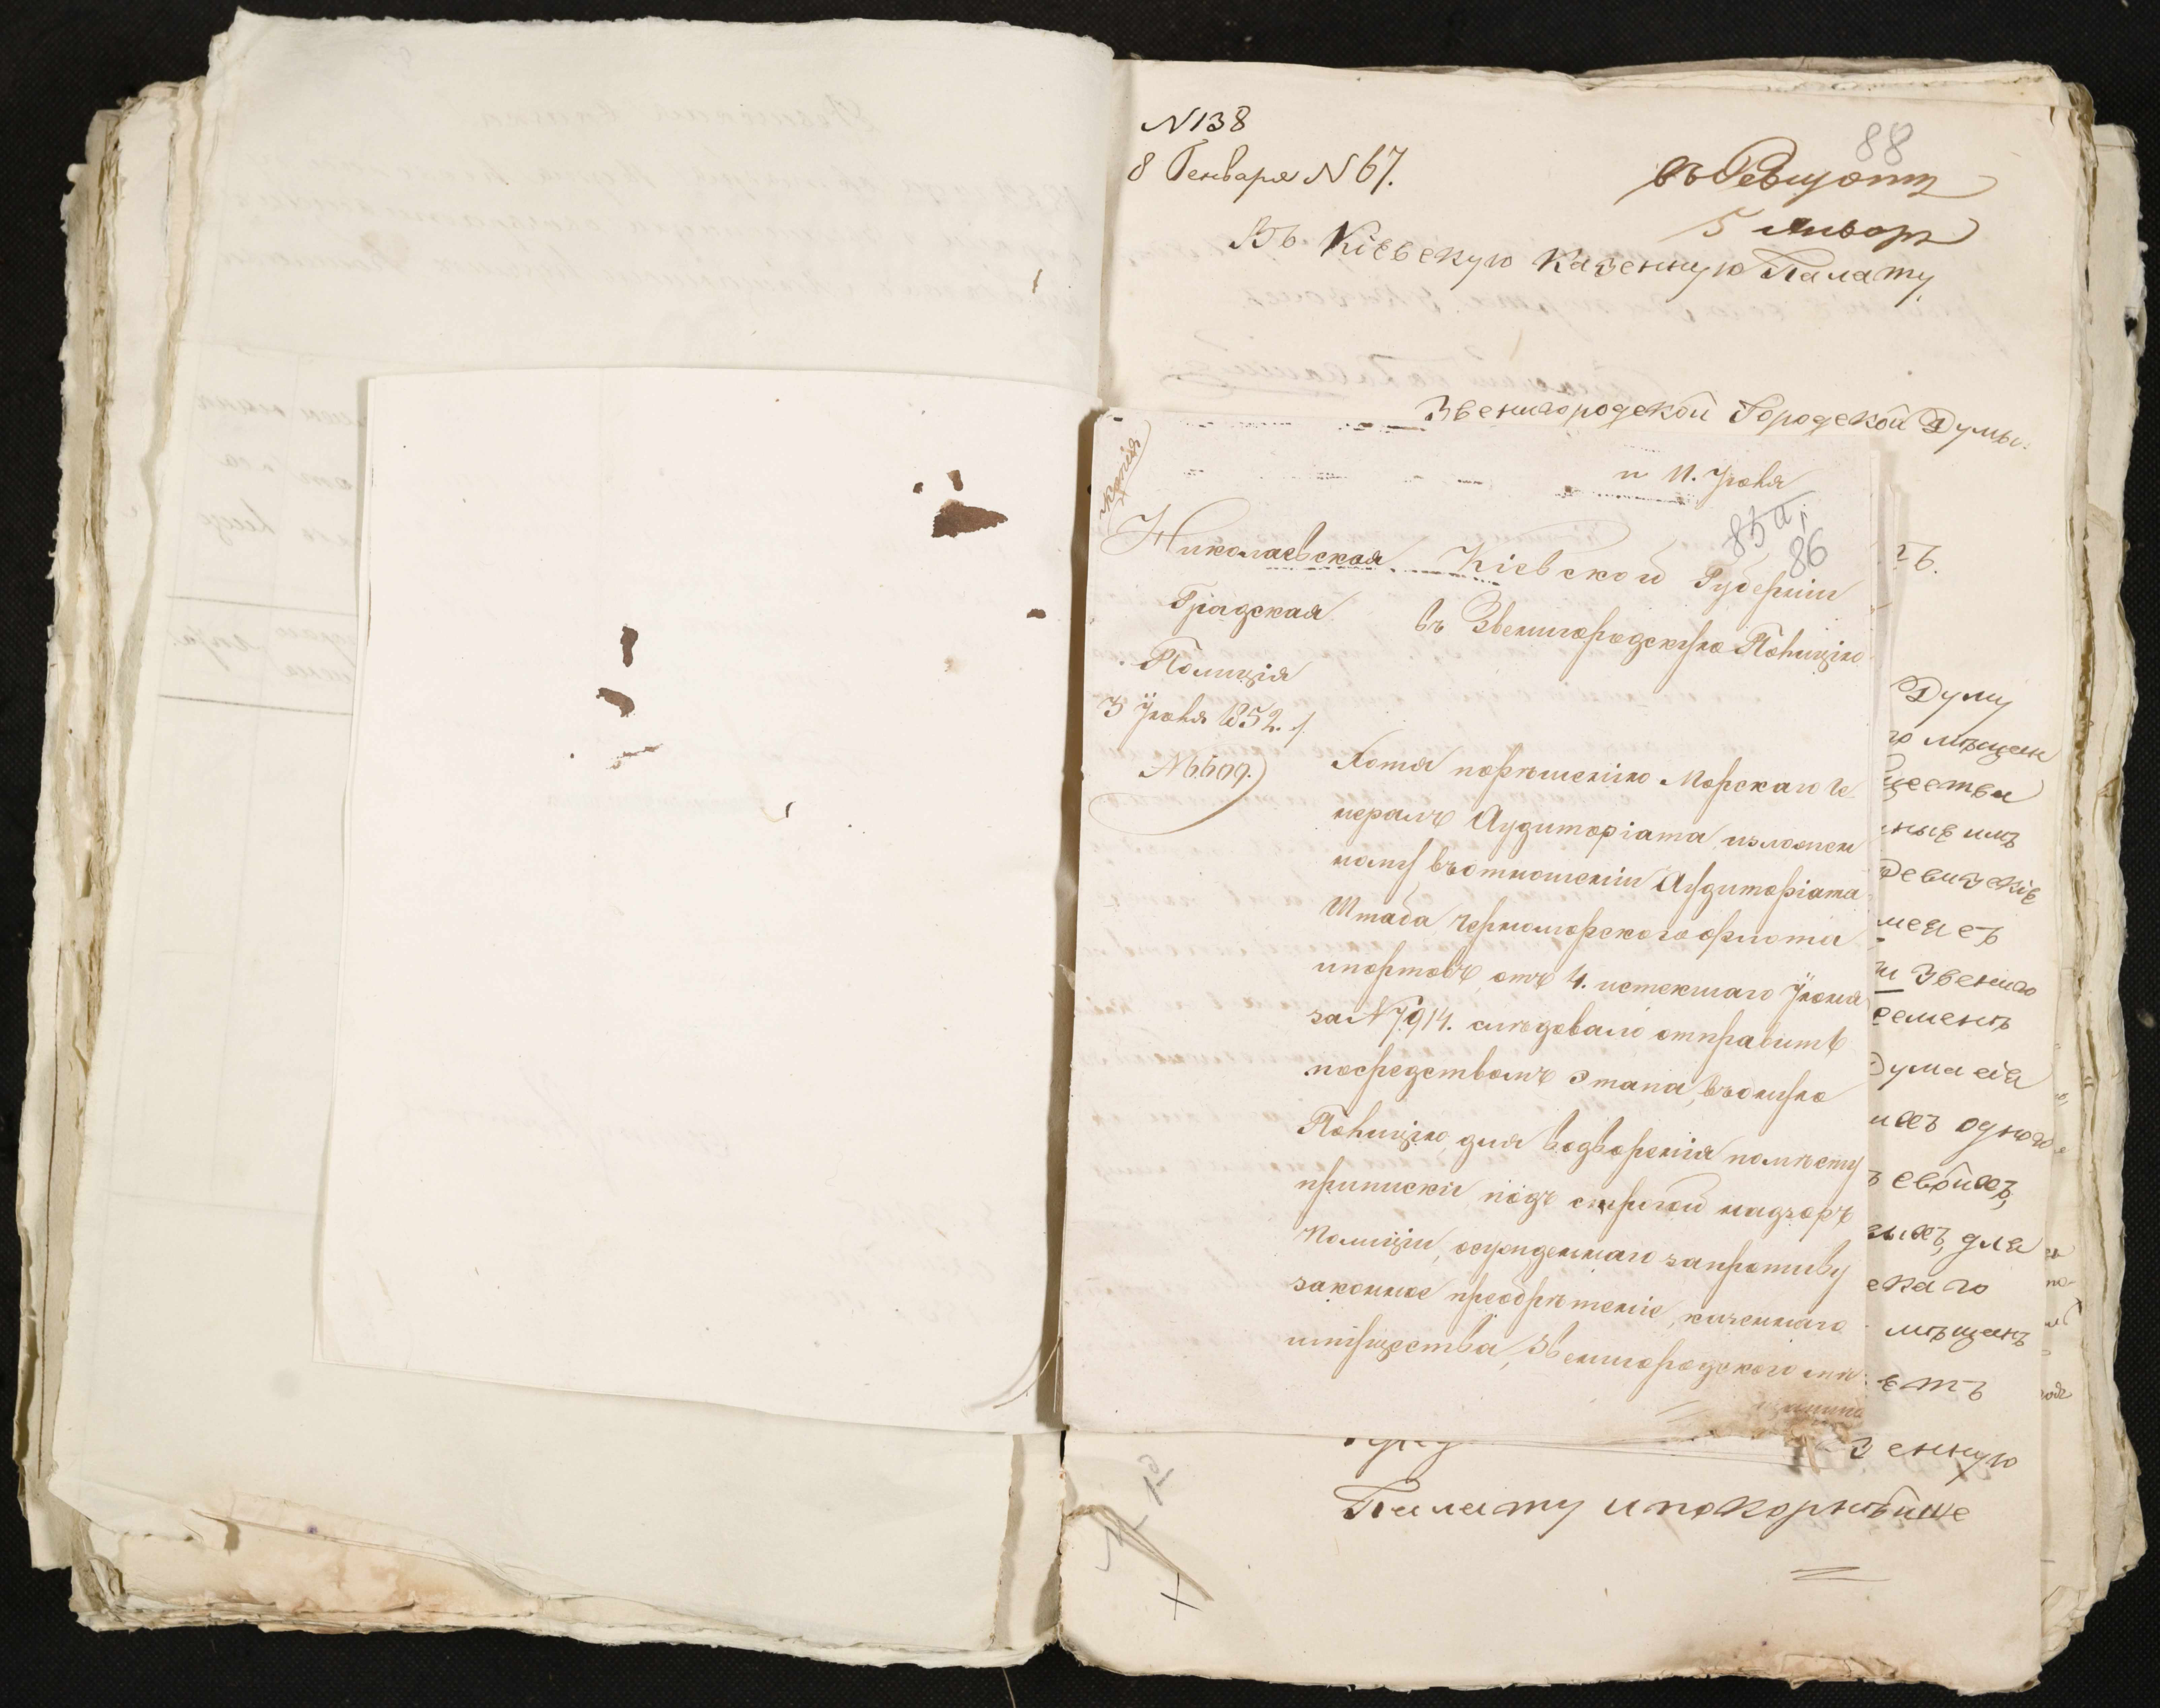 N 138
8 Генваря N 67.
88
въ Ревизотт
5 январ
Въ Кіевскую Казенную Палату
Звенигородской Городской Думы
Копія
и 11. Іюля
86
Николаевская
Градская
Полиція
3 Іюля 1852. г.
N 6609.
Кіевской Губерніи
въ Звенигородскую Полицію
Хотя по решенію Морскаго Ге
нералъ Аудиторіата, изложен
ному въ отношеніи Аудиторіата
Штаба Черноморскаго флота
и портовъ, отъ 4. истекшаго Іюня
за N 7914. слѣдовало отправить
посредствомъ этапа, въ оную
Полицію, для водворенія по мѣсту
приписки, подъ строгой надзоръ
Полиціи, осужденнаго за противу
законное преобрѣтеніе, казеннаго
имущества, Звенигородского мѣ
щанина
ть.
Думу
го мѣщан
щества
ные имъ
Ревизскіе
меня съ
и Звениго
семенъ
Дума сія
ихъ одного
ъ свѣихъ,
ныхъ, для
скаго
мѣщанъ
етъ
зенную
Палату и покорнѣйше